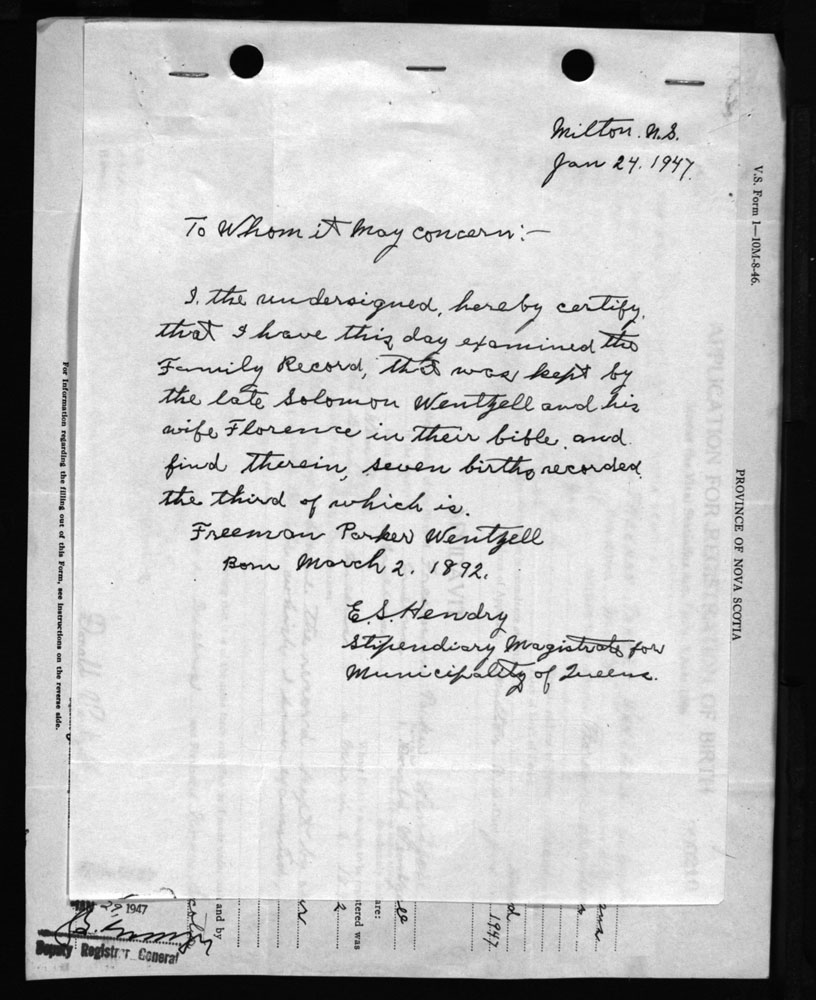 Milton. N.S.
Jan 24. 1947.
To Whom it May concern:-
I. the undersigned, hereby certify,
that I have this, day examined the
Family Record, that was kept by
the late Solomon Wentzell and his
wife Florence in their bible, and
find therein, seven births, recorded,
the third of which is.
Freeman Parker Wentzell
Born March 2. 1892.
E.S. Hendry
Stipendiary Magistrate for
Municipality of Queens.
V.S. Form 1—10M-8-46.
PROVINCE OF NOVA SCOTIA
APPLICATION FOR REGISTRATION OF BIRTH
For Information regarding the filling out of this Form, see instructions on the reverse side.
29 1947
Deputy Registrar General
and by
are:
tered was
2
1947